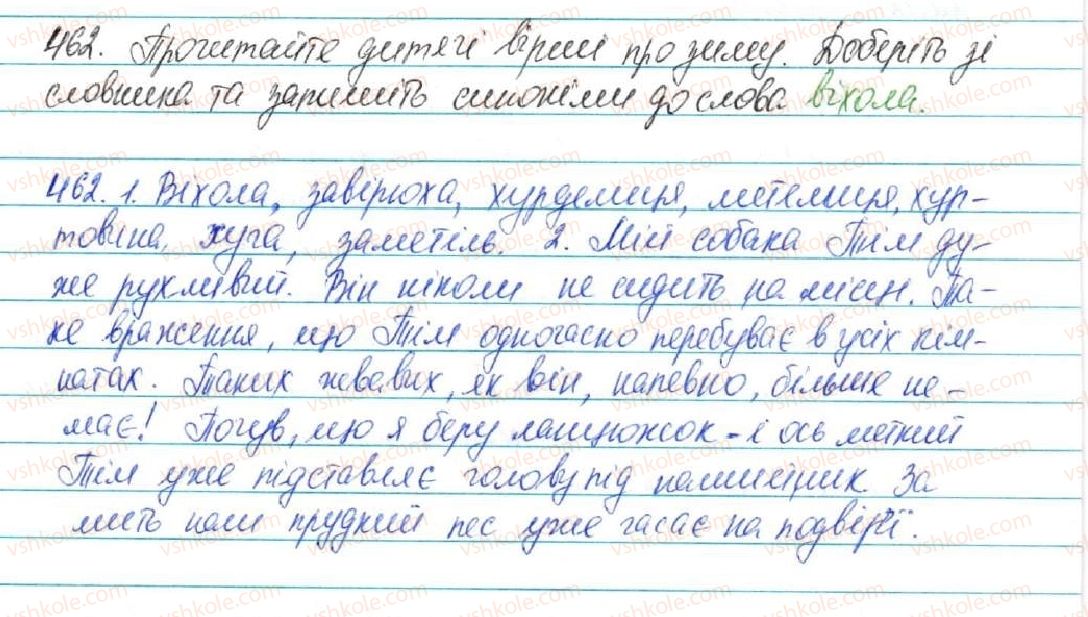 462. Прочитайте дитячі вірші про зиму. Доберіть зі
словника та запишіть синоніми до слова віхола.
462. 1. Віхола, завірюха, хурделиця, метелиця, хур-
товина, хуга, заметіль. 2. Мій собака Тім ду-
же рухливий. Він ніколи не сидить на місці. Та-
ке враження, що Тім одночасно перебуває в усіх кім-
натах. Таких жвавих, як він, напевно, більше не-
має! Почув, що я беру ланцюжок - і ось меткий
Тім уже підставляє голову під нашийник За
мить наш прудкий пес уже гасає на подвір'ї.